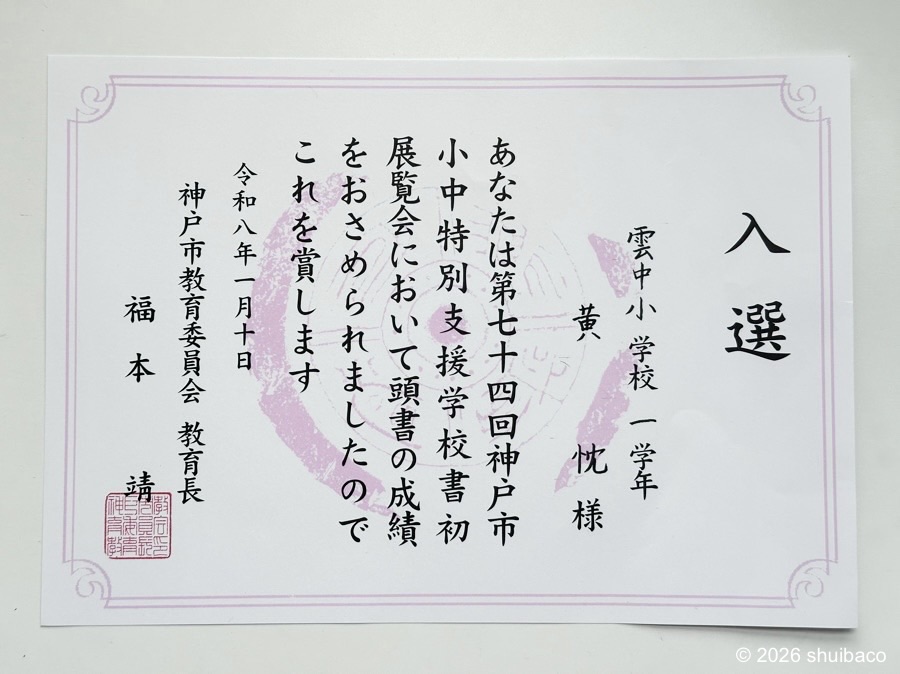 入選
雲中小学校 一学年
黄 忱 様
あなたは第七十四回神戸市
小中特別支援学校書初
展覧会において頭書の成績
をおさめられましたので
これを賞します
令和八年一月十日
神戸市教育委員会 教育長
福本 靖
© 2026 shuibaco